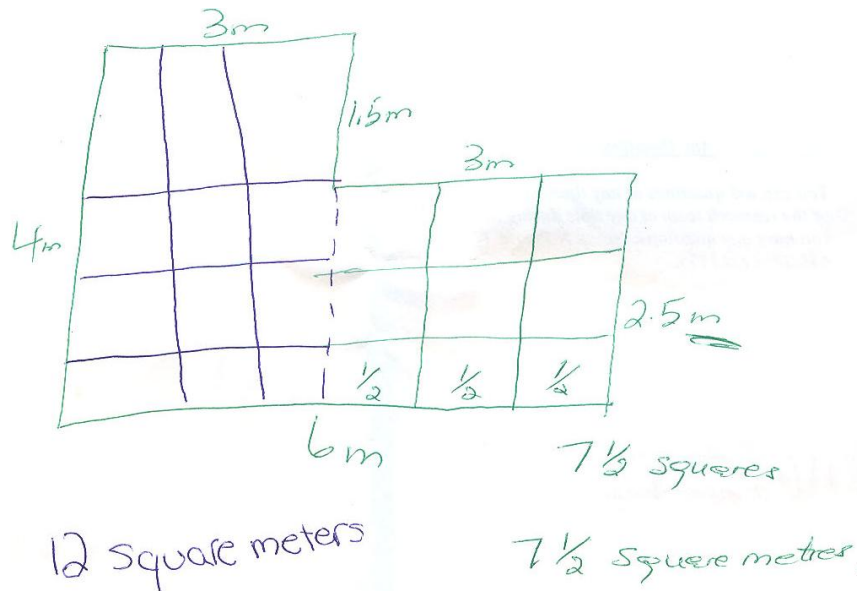 3m
1.5m
3m
4m
2.5m
1/2 1/2 1/2
6m
7 1/2 squares
12 square meters
7 1/2 square metres